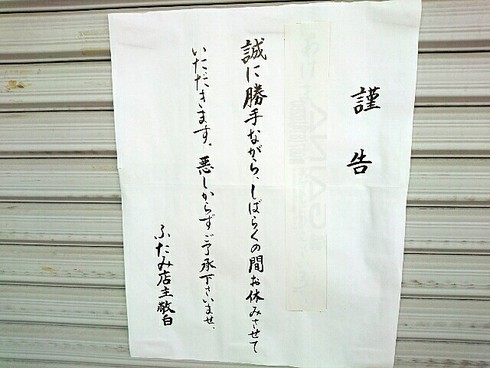 謹告
誠に勝手ながら、しばらくの間お休みさせて
いただきます。悪しからずご了承下さいませ。
ふたみ店主敬白